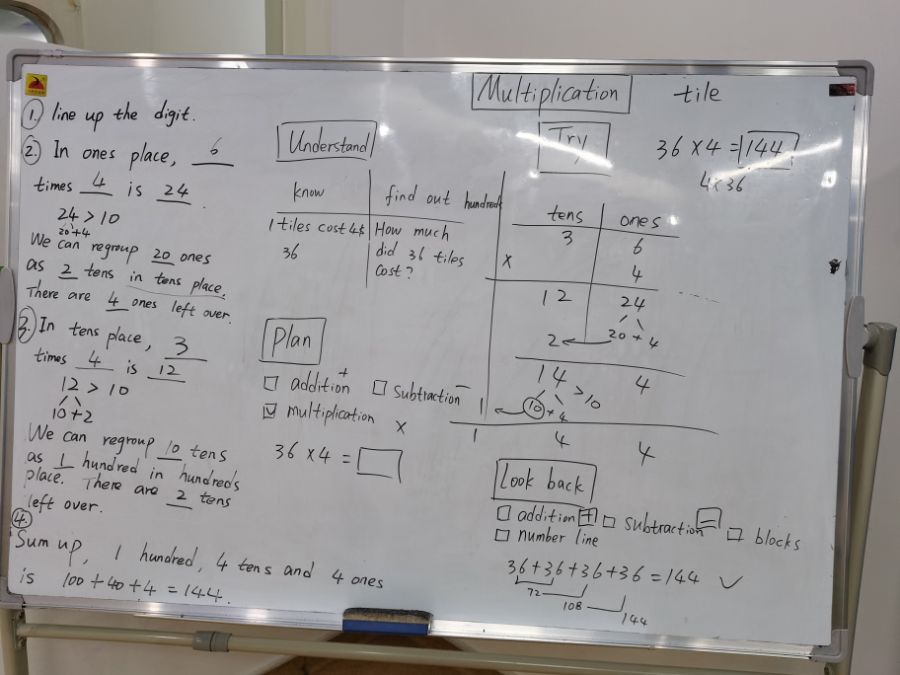 Multiplication tile
① line up the digit.
② In ones place, 6
times 4 is 24
24 > 10
20+4
We can regroup 20 ones
as 2 tens in tens place.
There are 4 ones left over.
③ In tens place, 3
times 4 is 12
12 > 10
10+2
We can regroup 10 tens
as 1 hundred in hundred's
place. There are 2 tens
left over.
④
Sum up, 1 hundred, 4 tens and 4 ones
is 100+40+4=144.
Understand
know find out
1 tiles cost 4$ How much
36 did 36 tiles
cost?
Plan
□ addition + □ subtraction −
☑ multiplication ×
36 ×4 = □
Try
36 ×4 = 144
4×36
hundreds tens ones
3 6
× 4
12 24
20+4
2
14 4
10+4 >10
1
1 4 4
Look back
□ addition + □ subtraction − □ blocks
□ number line
36+36+36+36=144 ✓
72
108
144